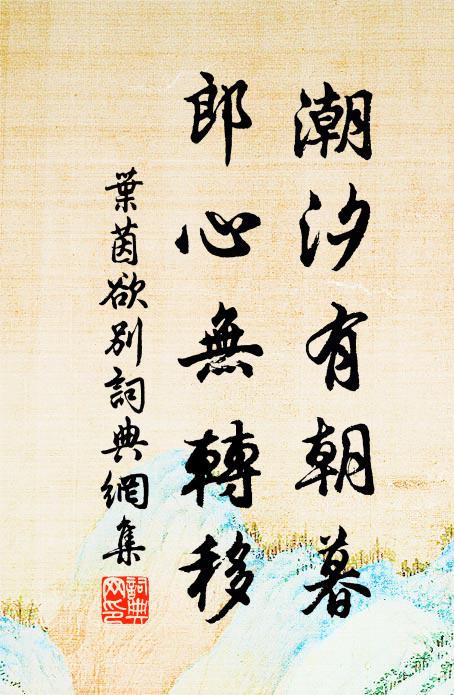 潮汐有朝暮
郎心無轉移
葉茵欲別詞典網集
詞典
网印